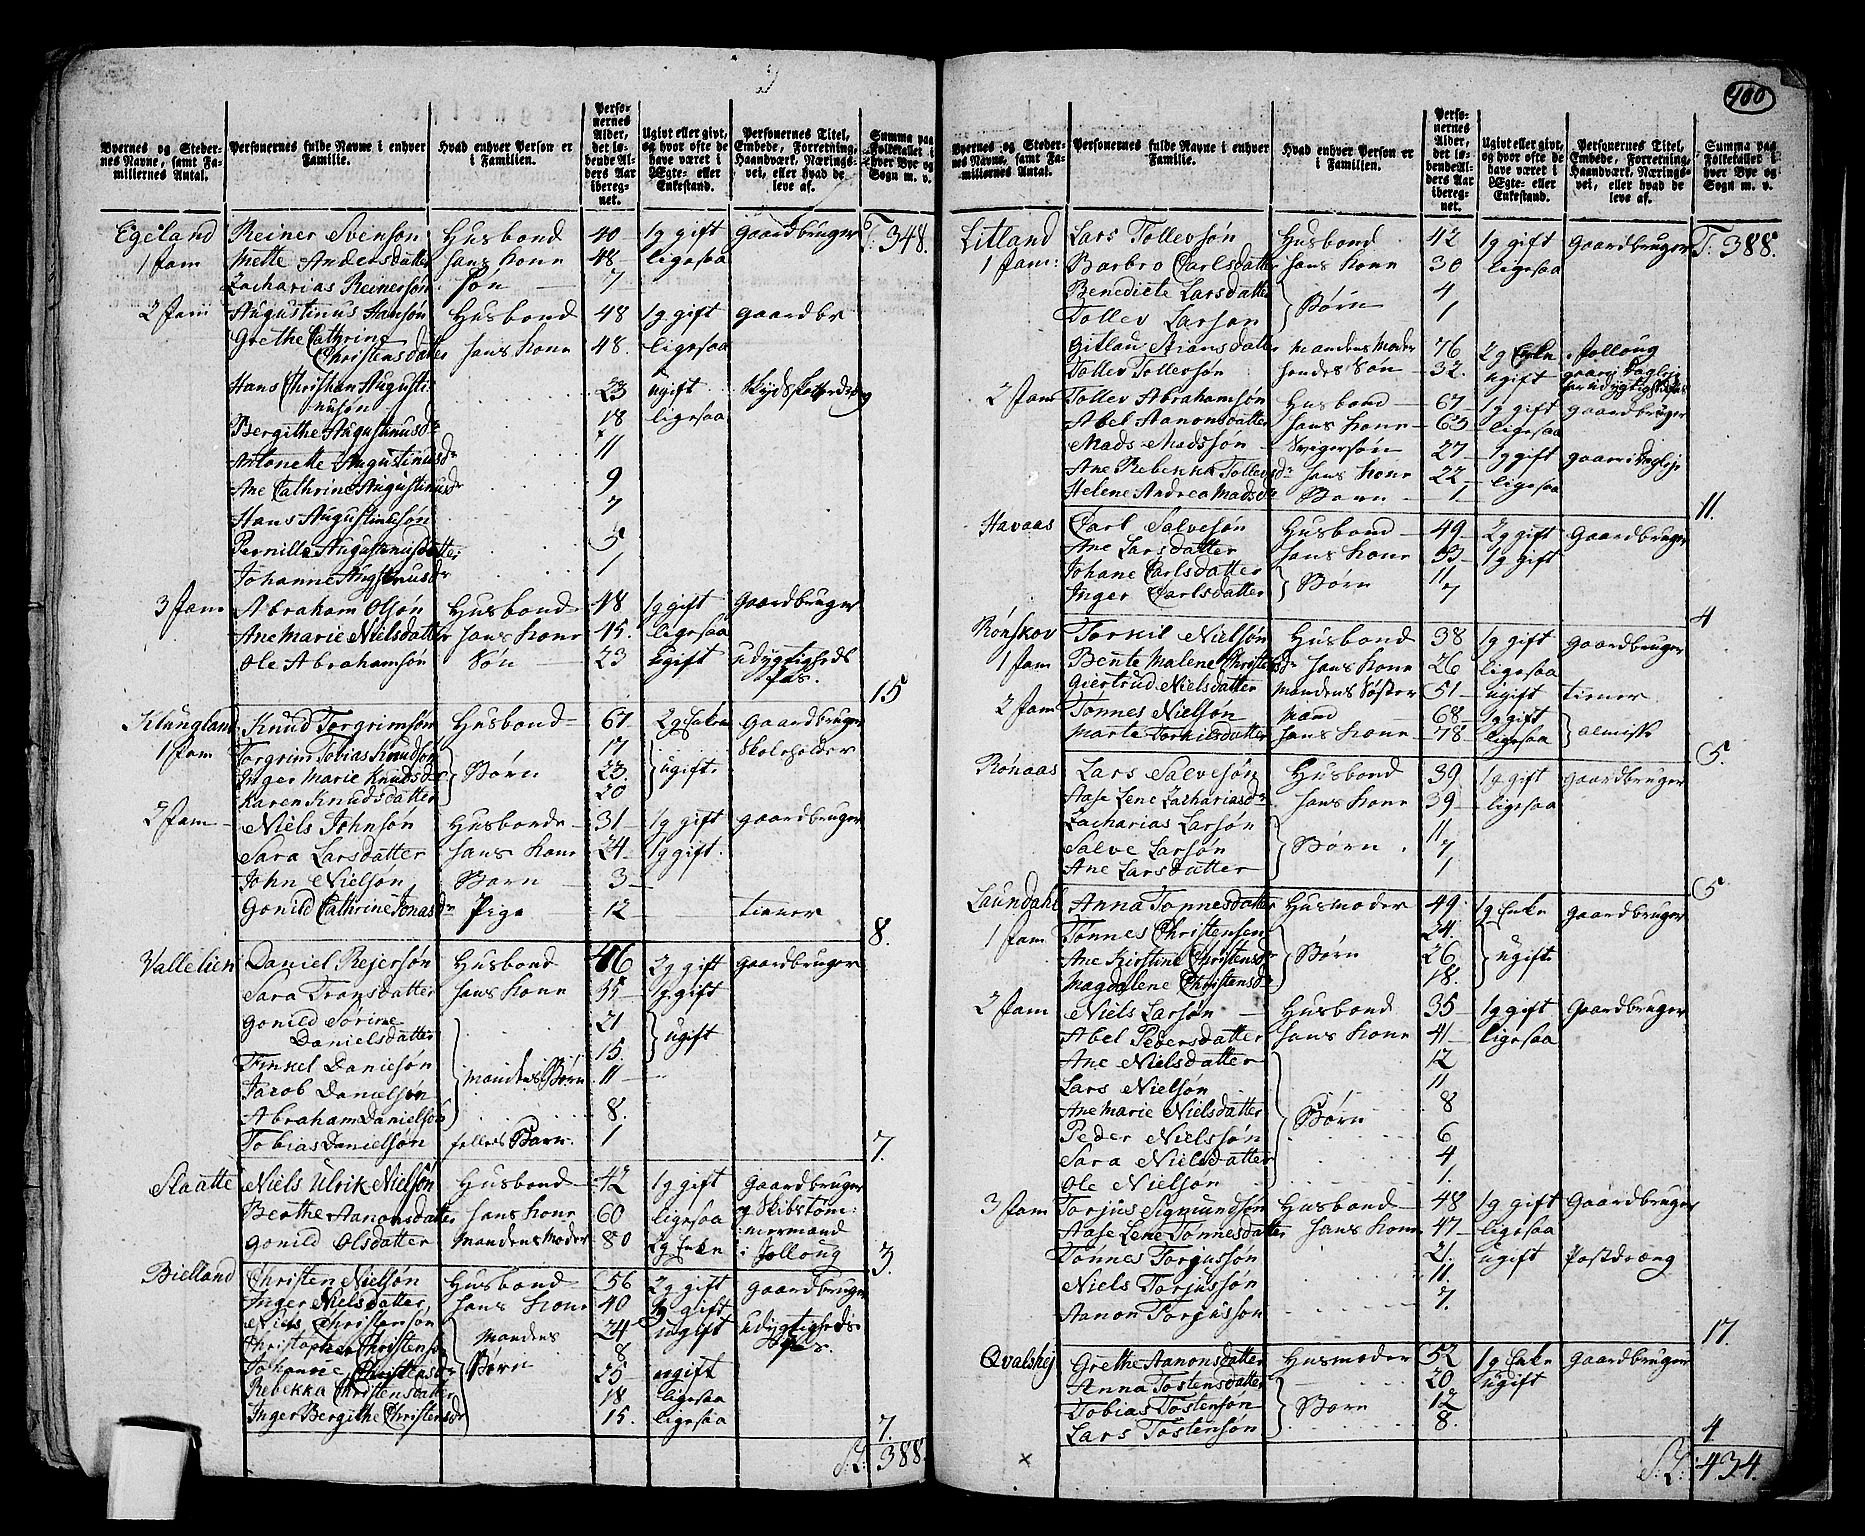 400
Byernes og Stedernes Navne, samt Familiernes Antal.
Personernes fulde Navne i enhver Familie.
Hvad enhver Person er i Familien.
Personernes Alder, det løbende Alders Aar iberegnet.
Ugivt eller givt, og hvor ofte de have været i Ægte- eller Enkestand.
Personernes Titel, Embede, Forretning, Haandværk, Næringsvei, eller hvad de leve af.
Summa paa Folketallet i hver Bye og Sogn m. v.
Egeland Reiner Svensøn Husbond 40 1g gift gaardbruger T: 348.
1 fam Mette Andersdatter hans Kone 48 ligesaa
Zacharias Reinersøn Søn 7
2 fam Augustinus Hansøn Husbond 48 1g gift gaardbr
Grethe Cathrine
Christensdatter hans Kone 48. ligesaa
Hans Christian Augusti
nusøn 23 ugift
Bergithe Augustinusdr 18 ligesaa
Antonette Augustinusdr 11
Ane Cathrine Augustinusdr 9
Hans Augustinusøn 7
Pernille Augustinusdatter 5
Johanne Augstinusdr 1
3 fam Abraham Olsøn Husbond 48 1g gift gaardbruger
Ane Marie Nielsdatter hans Kone 45. ligesaa
Ole Abrahamsøn Søn 23 ugift udygtigheds
pas. 15
Klungland Knud Torgrimsøn Husbond 67 2g Enke gaardbruger
1 fam Torgrim Tobias Knudsøn 17 skoleholder
Inger Marie Knudsdr Børn 23. ugift
Karen Knudsdatter 20
2 fam Niels Johnsøn Husbonde 31 1g gift gaardbruger
Sara Larsdatter hans Kone 24 1g gift
John Nielsøn Barn 3
Gonild Cathrine Jonasdr Pige 12 tiener
8.
Vallelien Daniel Rejersøn Husbond 46 2g gift gaardbruger
Sara Tronsdatter hans Kone 35 1g gift
Gonild Sørine
Danielsdatter 21 ugift
Finkel Danielsøn 15.
Jacob Danielsøn mandens Børn 11
Abraham Danielsøn 8.
Tobias Danielsøn felles Barn. 1 7.
Slaatte Niels Ulrik Nielsøn Husbond 42 1g gift gaardbruger
Berthe Aanonsdatter hans Kone 60 ligesaa og Skibstøm:
Gonild Olsdatter mandens moder 80 2g Enke mermand
i folloug 3.
Bielland Christen Nielsøn Husbond 56 2g gift gaardbruger
Inger Nielsdatter hans Kone 40 1g gift
Niels Christensøn mandens 24 ugift udygtigheds
Christopher Christensøn Børn 8 pas.
Johanne Christensdr 25 ugift
Rebekka Christensdatter 18 ligesaa
Inger Bergithe Christensdr 15. ligesaa 7.
S: L: 388.
Byernes og Stedernes Navne, samt Familiernes Antal.
Personernes fulde Navne i enhver Familie.
Hvad enhver Person er i Familien.
Personernes Alder, det løbende Alders Aar iberegnet.
Ugivt eller givt, og hvor ofte de have været i Ægte- eller Enkestand.
Personernes Titel, Embede, Forretning, Haandværk, Næringsvei, eller hvad de leve af.
Summa paa Folketallet i hver Bye og Sogn m. v.
Litland Lars Tollevsøn Husbond 42 1g gift gaardbruger T: 388.
1 fam: Barbro Carlsdatter hans Kone 30 ligesaa
Benedicte Larsdatter Børn 4
Tollev Larsøn 1
Gitlau Stiansdatter mandens moder 76 2g Enke folloug
Tollev Tollevsøn hendes Søn 32. ugift
2 fam Tollev Abrahamsøn Husbond 67 1g gift gaardbruger
Abel Aanonsdatter hans Kone 63 ligesaa
Mads Madssøn Svigersøn 27 1g gift
Ane Rebekka Tollevsdr hans Kone 22 ligesaa
Helene Andrea Madsdr Børn 1
11.
Havaas Carl Salvesøn Husbond 49 2g gift gaardbruger
Ane Larsdatter hans Kone 33 1g gift
Johane Carlsdatter Børn 11
Inger Carlsdatter 7
4
Rønskov Torkil Nielsøn Husbond 38 1g gift gaardbruger
1 fam Bente Malene Christensdr hans Kone 26 ligesaa
Giertrud Nielsdatter mandens Søster 51 ugift tiener
2 fam Tønnes Nielsøn mand 68 1g gift almisse
Marte Torkilsdatter hans Kone 78 ligesaa
5.
Rønaas Lars Salvesøn Husbond 39 1g gift gaardbruger
Aase Lene Zachariasdr hans Kone 39 ligesaa
Zacharias Larsøn 11
Salve Larsøn Børn 7
Ane Larsdatter 1
5
Laundahl Anna Tønnesdatter Husmoder 49 1g Enke gaardbruger
1 fam Tønnes Christensen 24.
Ane Kirstine Christensdr Børn 26 ugift
Magdalene Christensdr 18.
2 fam Niels Larsøn Husbond 35 1g gift gaardbruger
Abel Pedersdatter hans Kone 41 ligesaa
Ane Nielsdatter 12
Lars Nielsøn 11
Ane Marie Nielsdatter Børn 8
Peder Nielssøn 6
Sara Nielsdatter 4
Ole Nielsøn 1.
3 fam Torjus Sigmundsøn Husbond 48 1g gift gaardbruger
Aase Lene Tønnesdatter hans Kone 47 ligesaa
Tønnes Torgussøn 21. ugift Postdræng
Niels Torjussøn 11.
Aanon Torjussøn 7.
17.
Qvalshej Grethe Aanonsdatter Husmoder 52 1g Enke gaardbruger
Anna Tostensdatter 20 ugift
Tobias Tostensøn Børn 12
Lars Tostensøn 8. 4
S: L: 434.